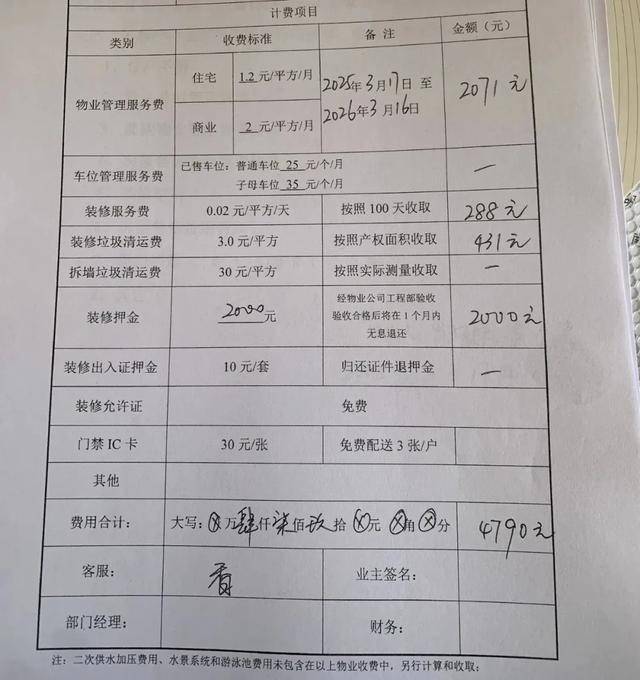 计费项目
类别 收费标准 备 注 金额（元）
物业管理服务费 住宅 1.2 元/平方/月 2025年3月17日 至 2071元
商业 2 元/平方/月 2026年3月16日
车位管理服务费 已售车位：普通车位 25 元/个/月 —
子母车位 35 元/个/月
装修服务费 0.02 元/平方/天 按照 100 天收取 288元
装修垃圾清运费 3.0 元/平方 按照产权面积收取 431元
拆墙垃圾清运费 30 元/平方 按照实际测量收取 —
装修押金 2000元 经物业公司工程部验收 2000元
验收合格后将在 1 个月内
无息退还
装修出入证押金 10 元/套 归还证件退押金 —
装修允许证 免费
门禁 IC 卡 30 元/张 免费配送 3 张/户
其他
费用合计： 大写：ⓧ万肆仟柒佰玖拾ⓧ元ⓧ角ⓧ分 4790元
客服： 业主签名：
部门经理： 财务：
注：二次供水加压费用、水景系统和游泳池费用未包含在以上物业收费中，另行计算和收取；